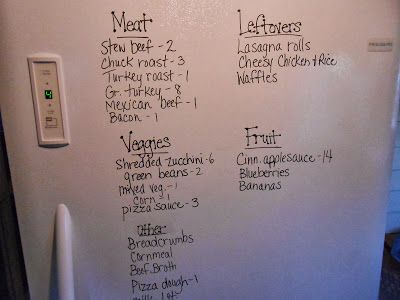 Meat
Stew beef - 2
Chuck roast - 3
Turkey roast - 1
Gr. turkey - 8
Mexican beef - 1
Bacon - 1
Leftovers
Lasagna rolls
Cheesy Chicken & Rice
Waffles
Veggies
Shredded zucchini - 6
green beans - 2
mixed veg. - 1
corn - 1
pizza sauce - 3
Fruit
Cinn. applesauce - 14
Blueberries
Bananas
Other
Breadcrumbs
Cornmeal
Beef Broth
Pizza dough - 1